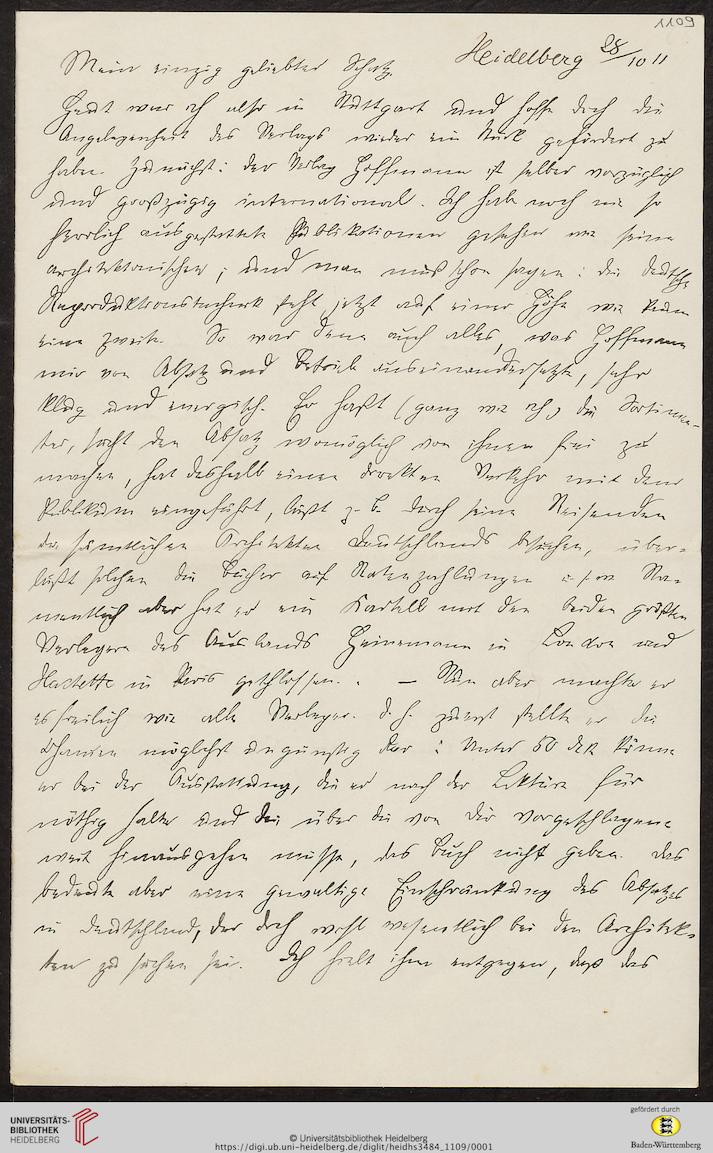 1109
Heidelberg 28/10 11
Mein einzig geliebter Schatz,
Heut war ich also in Stuttgart und hoffe doch die
Angelegenheit des Verlags wieder ein Stück gefördert zu
haben. Zunächst: der Verlag Hoffmann ist selber vorzüglich
und großzügig international. Ich habe noch nie so
herrlich ausgestattete Publikationen gesehen wie seine
architektonischen; und man muß schon sagen: die deutsche
Reproduktionstechnik steht jetzt auf einer Höhe wie kaum
eine zweite. So war denn auch alles, was Hoffmann
mir von Absatz und Betrieb auseinandersetzte, sehr
klug und energisch. Er haßt (ganz wie ich) die Sortimen-
ter, sucht den Absatz womöglich von ihnen frei zu
machen, hat deshalb einen direkten Verkehr mit dem
Publikum eingeführt, läßt z. B. durch seine Reisenden
die sämtlichen Architekten Deutschlands besuchen, über-
läßt solchen die Bücher auf Ratenzahlungen Na-
mentlich aber hat er ein Kartell mit den beiden größten
Verlegern des Auslands Heinemann in London und
Hachette in Paris geschlossen. – Nun aber machte er
es freilich wie alle Verleger. d. h. zuerst stellte er die
Chancen möglichst ungünstig dar: Unter 50 könne
er bei der Ausstattung, die er nach der Lektüre für
nöthig halte und die über die von Dir vorgeschlagene
weit hinausgehen müsse, das Buch nicht geben. Das
bedeute aber eine gewaltige Einschränkung des Absatzes
in Deutschland, der doch wohl wesentlich bei den Architek-
ten zu suchen sei. Ich hielt ihm entgegen, daß das
UNIVERSITÄTS-
BIBLIOTHEK
HEIDELBERG
© Universitätsbibliothek Heidelberg
https://digi.ub.uni-heidelberg.de/diglit/heidhs3484_1109/0001
gefördert durch
Baden-Württemberg